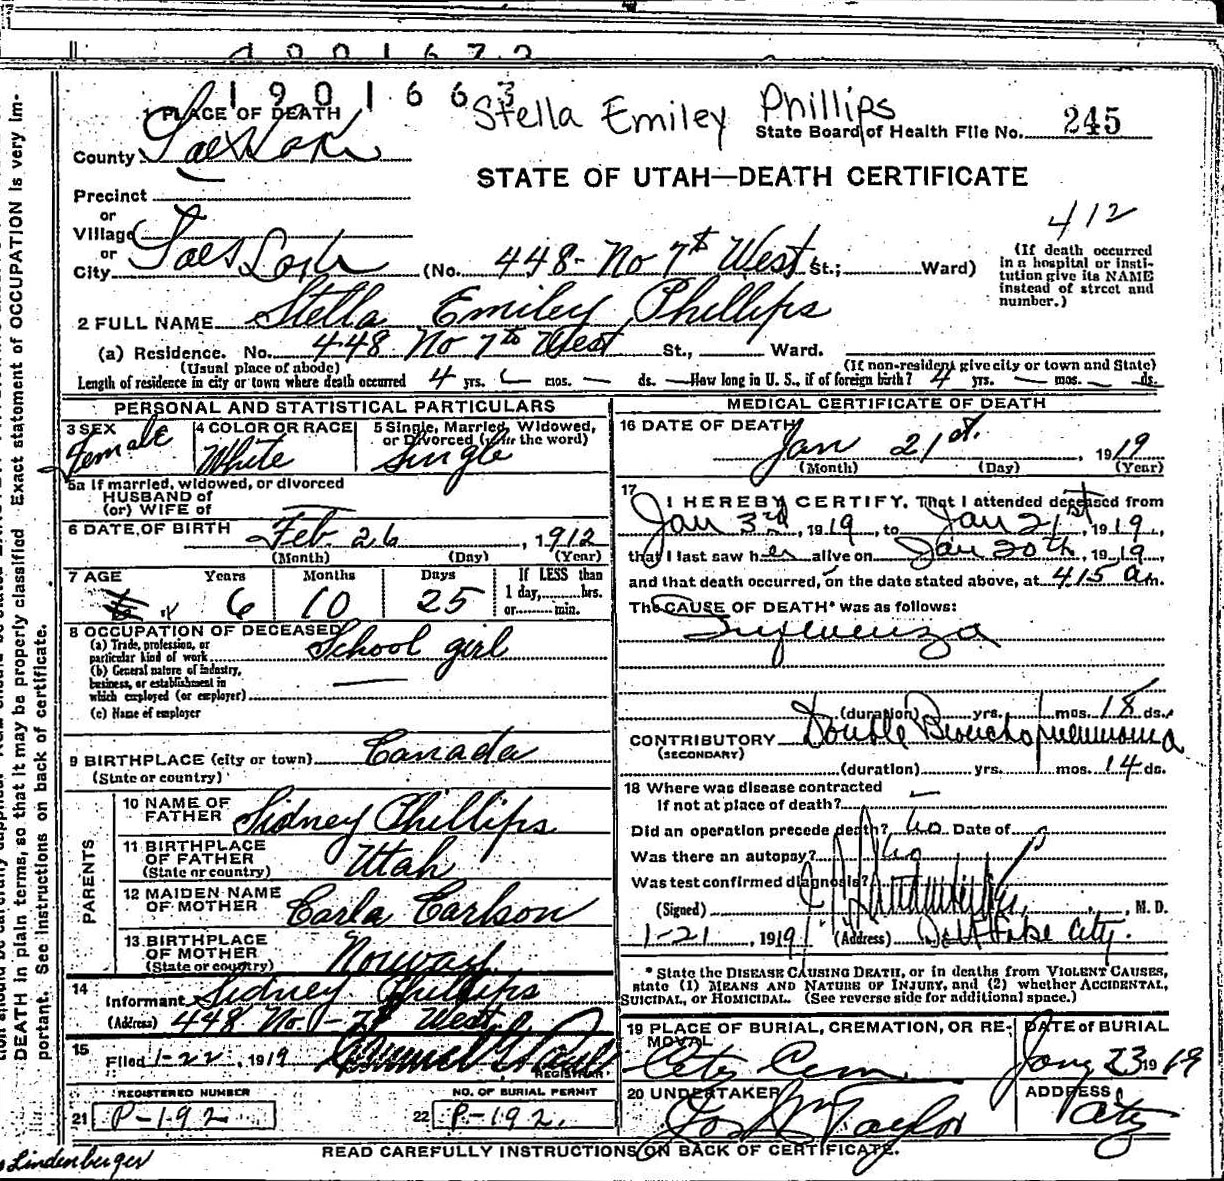 1901672
1901663
Stella Emiley Phillips
1 PLACE OF DEATH
State Board of Health File No. 245
County Salt Lake
STATE OF UTAH—DEATH CERTIFICATE
Precinct
or
Village
or
City Salt Lake (No. 448- No 7th West St.; Ward)
412
(If death occurred in a hospital or institution give its NAME instead of street and number.)
2 FULL NAME Stella Emiley Phillips
(a) Residence. No. 448 No 7th West St., Ward.
(Usual place of abode) (If non-resident give city or town and State)
Length of residence in city or town where death occurred 4 yrs. — mos. — ds. How long in U. S., if of foreign birth? 4 yrs. — mos. — ds.
PERSONAL AND STATISTICAL PARTICULARS
3 SEX Female
4 COLOR OR RACE White
5 Single, Married, Widowed, or Divorced (write the word) Single
5a If married, widowed, or divorced
HUSBAND of
(or) WIFE of —
6 DATE OF BIRTH Feb 26, 1912
(Month) (Day) (Year)
7 AGE Years 6 Months 10 Days 25 If LESS than 1 day, hrs. or min.
8 OCCUPATION OF DECEASED
(a) Trade, profession, or particular kind of work School girl
(b) General nature of industry, business, or establishment in which employed (or employer) —
(c) Name of employer
9 BIRTHPLACE (city or town) Canada
(State or country)
PARENTS
10 NAME OF FATHER Sidney Phillips
11 BIRTHPLACE OF FATHER (State or country) Utah
12 MAIDEN NAME OF MOTHER Carla Carlson
13 BIRTHPLACE OF MOTHER (State or country) Norway
14 Informant Sidney Phillips
(Address) 448 No. - 7th West
15 Filed 1-22, 1919
REGISTRAR
REGISTERED NUMBER
21 P-192
NO. OF BURIAL PERMIT
22 P-192.
MEDICAL CERTIFICATE OF DEATH
16 DATE OF DEATH Jan 21st. 1919
(Month) (Day) (Year)
17 I HEREBY CERTIFY, That I attended deceased from
Jan 3rd, 1919, to Jan 21st, 1919,
that I last saw her alive on Jan 20th, 1919,
and that death occurred, on the date stated above, at 415 am.
The CAUSE OF DEATH* was as follows:
Influenza
(duration) yrs. mos. 18 ds.
CONTRIBUTORY Double Bronchopneumonia
(SECONDARY)
(duration) yrs. mos. 14 ds.
18 Where was disease contracted
If not at place of death? —
Did an operation precede death? No Date of
Was there an autopsy? No
Was test confirmed diagnosis?
(Signed) M. D.
1-21, 1919 (Address) Salt Lake City.
* State the DISEASE CAUSING DEATH, or in deaths from VIOLENT CAUSES, state (1) MEANS AND NATURE OF INJURY, and (2) whether ACCIDENTAL, SUICIDAL, OR HOMICIDAL. (See reverse side for additional space.)
19 PLACE OF BURIAL, CREMATION, OR REMOVAL City Cem
DATE of BURIAL Jany 23 1919
20 UNDERTAKER Jos Wm Taylor
ADDRESS City
READ CAREFULLY INSTRUCTIONS ON BACK OF CERTIFICATE.
Lindenberger
DEATH in plain terms, so that it may be properly classified. Exact statement of OCCUPATION is very important. See instructions on back of certificate.